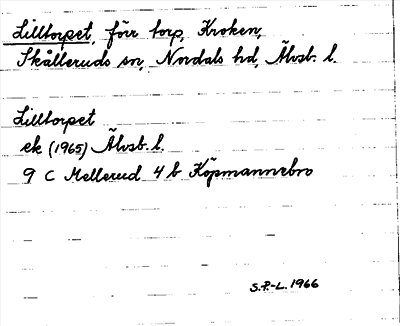 Lilltorpet, förr torp, Kroken,
Skålleruds sn, Nordals hd, Älvsb. l.
Lilltorpet
ek (1965) Älvsb. l.
9 C Mellerud 4 b Köpmannebro
S.P.-L. 1966